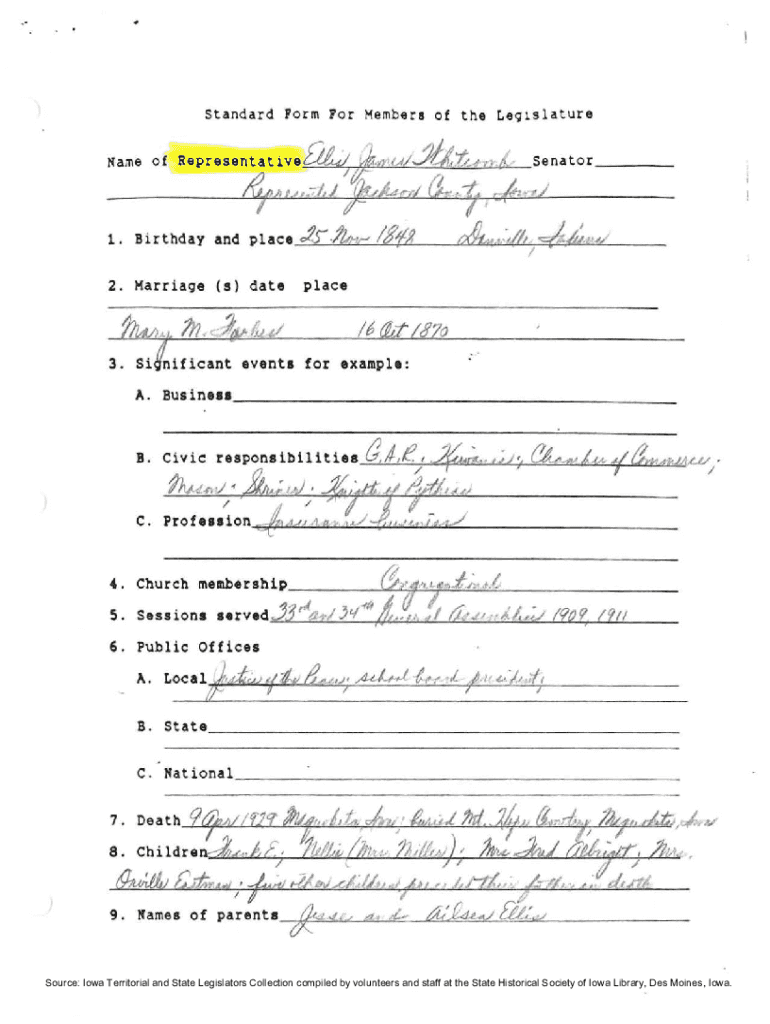 Standard Form For Members of the Legislature
Name of Representative Ellis, James Whitcomb Senator
Represented Jackson County, Iowa
1. Birthday and place 25 Nov 1848 Danville, Indiana
2. Marriage (s) date place
Mary M. Forbes 16 Oct 1870
3. Significant events for example:
A. Business
B. Civic responsibilities G.A.R.; Kiwanis; Chamber of Commerce;
Mason; Shriner; Knights of Pythias
C. Profession Insurance business
4. Church membership Congregational
5. Sessions served 33rd and 34th General Assemblies 1909, 1911
6. Public Offices
A. Local Justice of the Peace; school board president;
B. State
C. National
7. Death 9 Apr 1929 Maquoketa, Iowa; buried Mt. Hope Cemetery, Maquoketa, Iowa
8. Children Frank E.; Nellie (Mrs. Miller); Mrs. Fred Albright; Mrs.
Orville Eastman; five other children preceded their father in death
9. Names of parents Jesse and Ailsea Ellis
Source: Iowa Territorial and State Legislators Collection compiled by volunteers and staff at the State Historical Society of Iowa Library, Des Moines, Iowa.